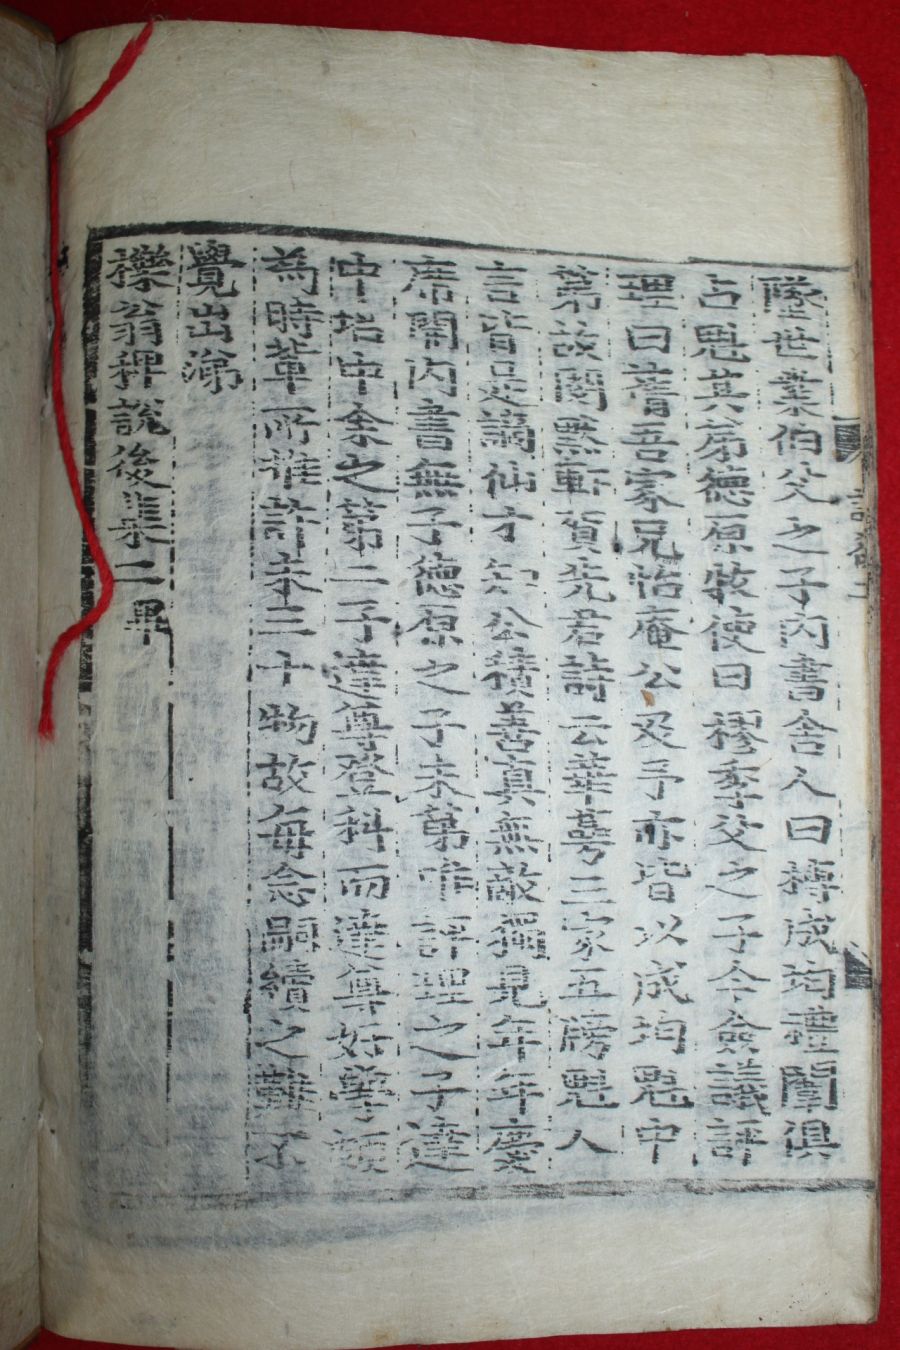 墜世業伯父之子內書舍人曰椲成均禮闈俱
占魁其弟德原牧使曰樛季父之子今僉議評
理曰蒨吾家兄怡庵公及予亦皆以成均魁中
第故閔默軒賀先君詩云華萼三家五牓魁人
言皆是謫仙才知公積善眞無敵獨見年年慶
席開內書無子德原之子未第唯評理之子達
中培中余之第二子達尊登科而達尊好學頗
為時輩所推許未三十物故每念嗣續之難不
覺出涕
櫟翁稗說後集二畢